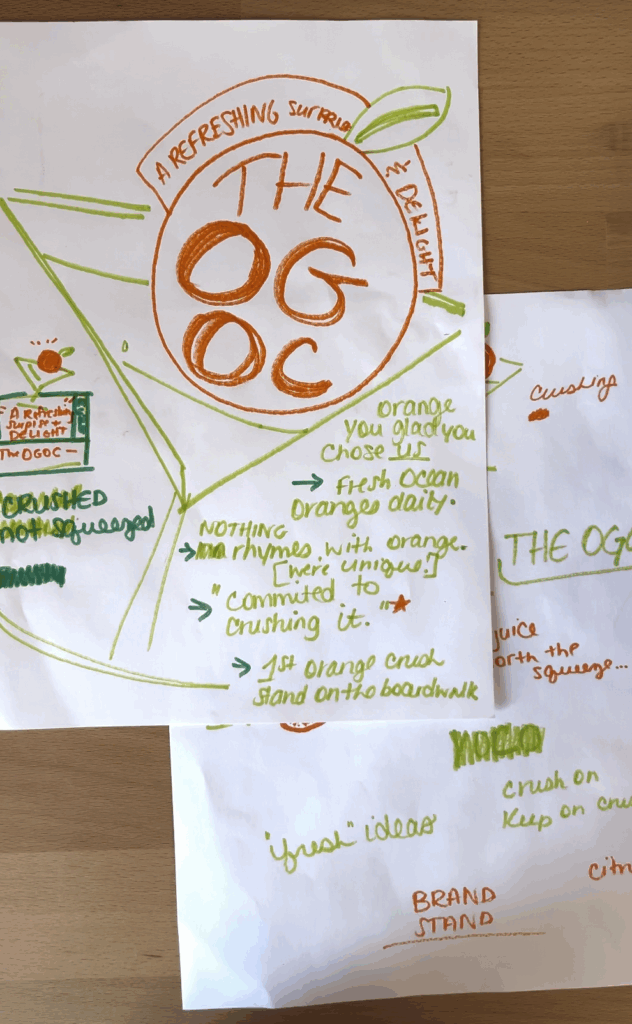 A REFRESHING SURPRISE
& DELIGHT
THE
OG
OC
A Refreshing
Surprise +
DELIGHT
THE OGOC —
CRUSHED
not squeezed
orange
you glad you
chose us
→ Fresh Ocean
Oranges daily.
NOTHING
→ rhymes with orange.
[we're unique!]
→ "Commited to
crushing it." ★
→ 1st orange crush
stand on the boardwalk
Crushing
THE OGO
juice
orth the
squeeze...
crush on
Keep on cru
"fresh" ideas
citr
BRAND
STAND